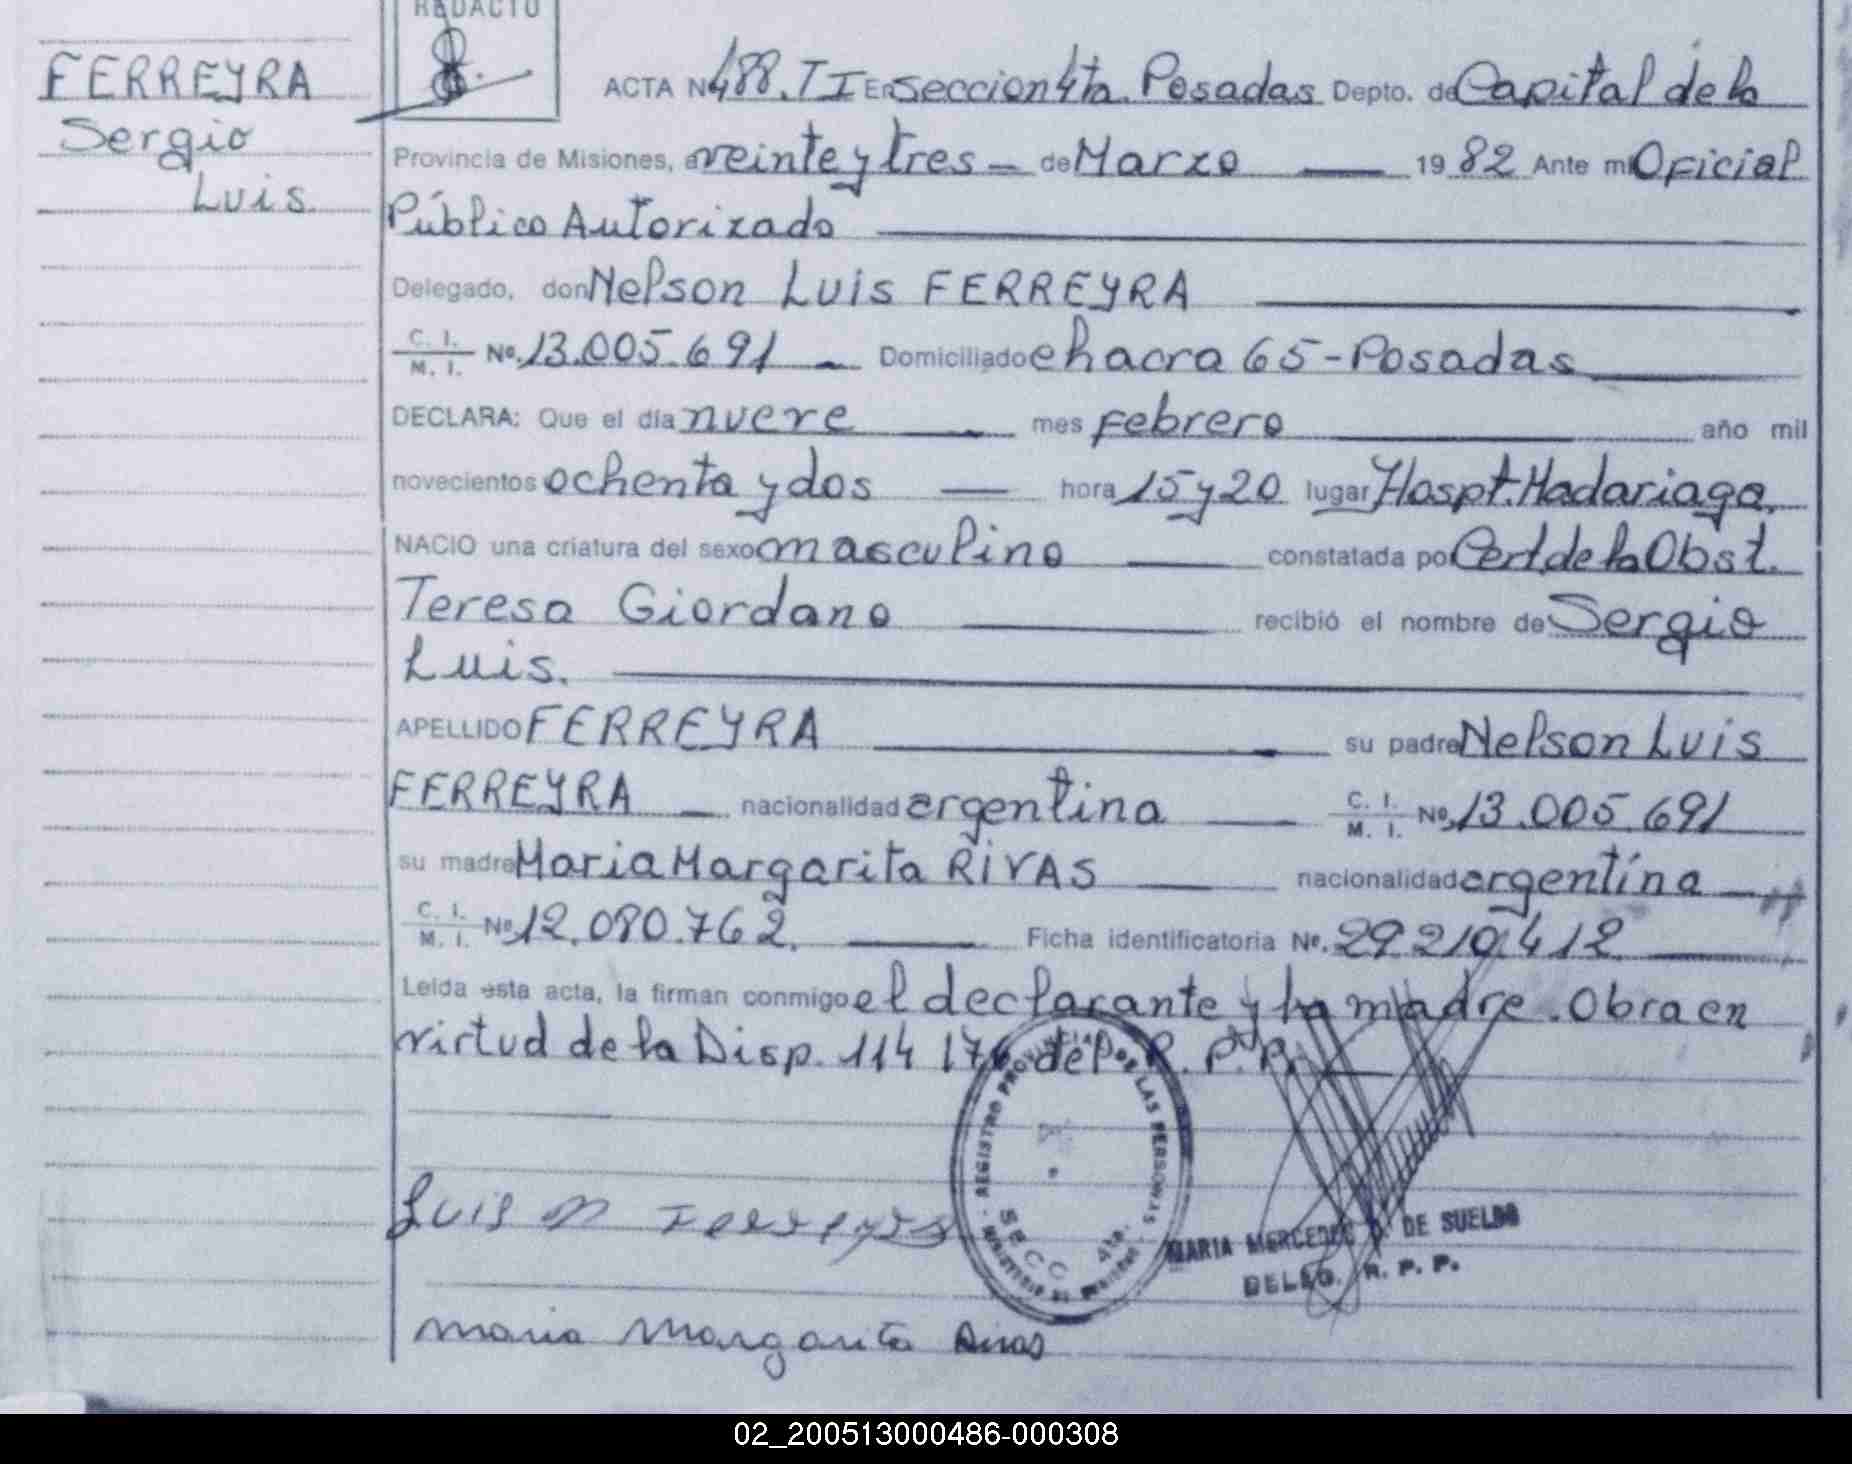 REDACTO
FERREYRA
Sergio
Luis.
ACTA Nº 488. T I En seccion 4ta. Posadas Depto. de Capital de la
Provincia de Misiones, a veinte y tres — de Marzo — 19 82 Ante mi Oficial
Público Autorizado
Delegado, don Nelson Luis FERREYRA
C. I. / M. I. Nº. 13.005.691 — Domiciliado chacra 65 - Posadas
DECLARA: Que el día nueve — mes febrero — año mil
novecientos ochenta y dos — hora 15 y 20 lugar Hospt. Madariaga.
NACIO una criatura del sexo masculino — constatada por Cert. de la Obst.
Teresa Giordano — recibió el nombre de Sergio
Luis.
APELLIDO FERREYRA — su padre Nelson Luis
FERREYRA — nacionalidad argentina — C. I. / M. I. Nº. 13.005.691
su madre Maria Margarita RIVAS — nacionalidad argentina —
C. I. / M. I. Nº 12.080.762. — Ficha identificatoria Nº. 29.210.412
Leída esta acta, la firman conmigo el declarante y la madre. Obra en
virtud de la Disp. 114 176 del R. P. P.
Luis N Ferreyra
REGISTRO PROVINCIAL DE LAS PERSONAS
SECC. 4ta.
MARIA MERCEDES D. DE SUELDO
DELEG. R. P. P.
Maria Margarita Rivas
02_200513000486-000308